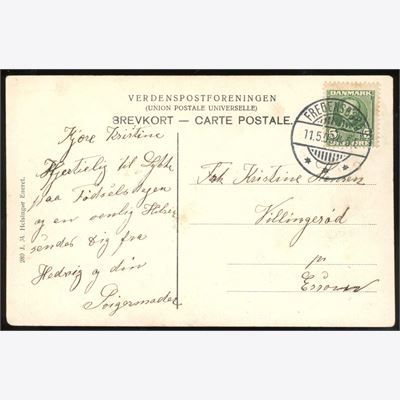 VERDENSPOSTFORENINGEN
(UNION POSTALE UNIVERSELLE)
BREVKORT — CARTE POSTALE.
DANMARK
FREDENSBORG
11.5.
Kjøre Kristine
Hjertelig til Lykke
paa Fødselsdagen
og en venlig Hilsen
sendes Dig fra
Hedvig og din
Frk. Kristine Hansen
Villingerød
pr
Esrom
280 J. M. Helsingør Eneret.